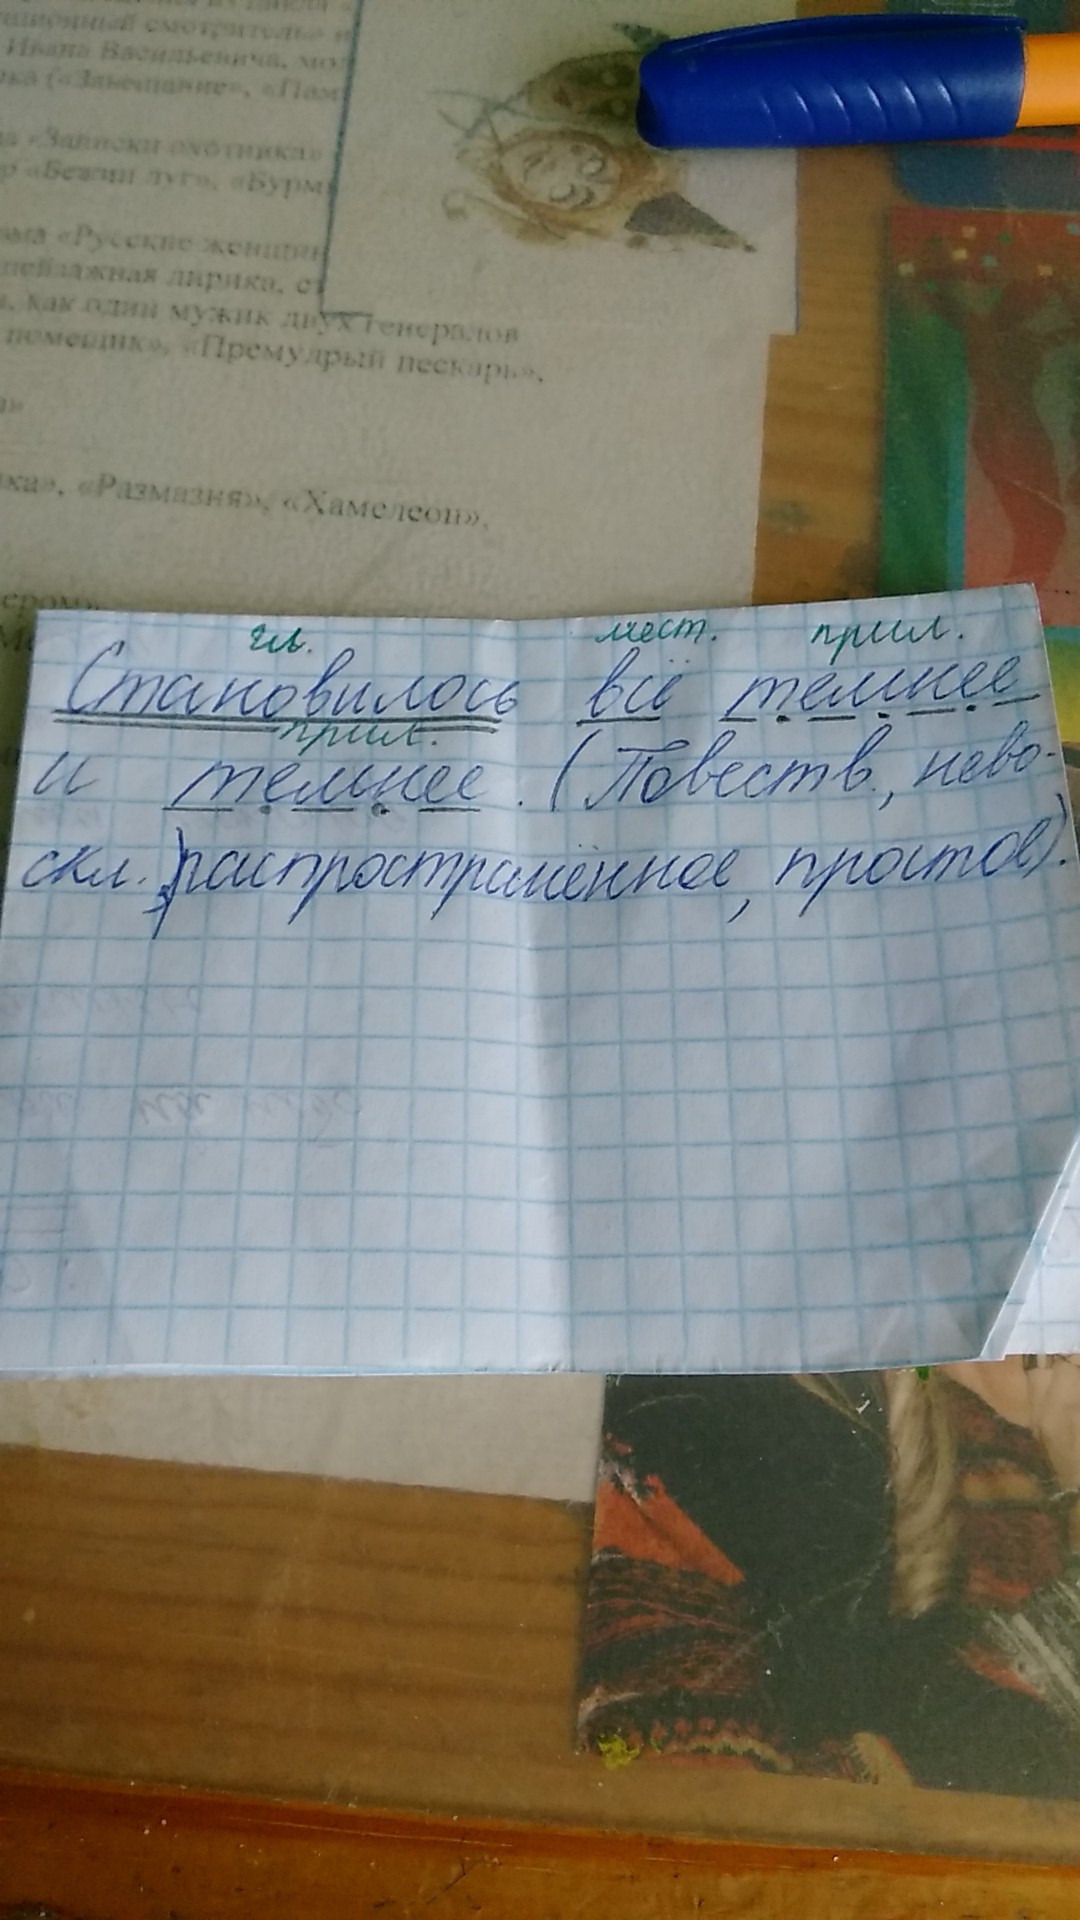 Ивана Васильевича,
«Записки охотника»
«Бежин луг»,
«Русские женщин
пейзажная лирика,
как один мужик двух генералов
помещик», «Премудрый пескарь»,
«Размазня», «Хамелеон»,
гл. мест. прил.
Становилось всё темнее
прил.
и темнее. (Повеств., нево-
скл., распространённое, простое).